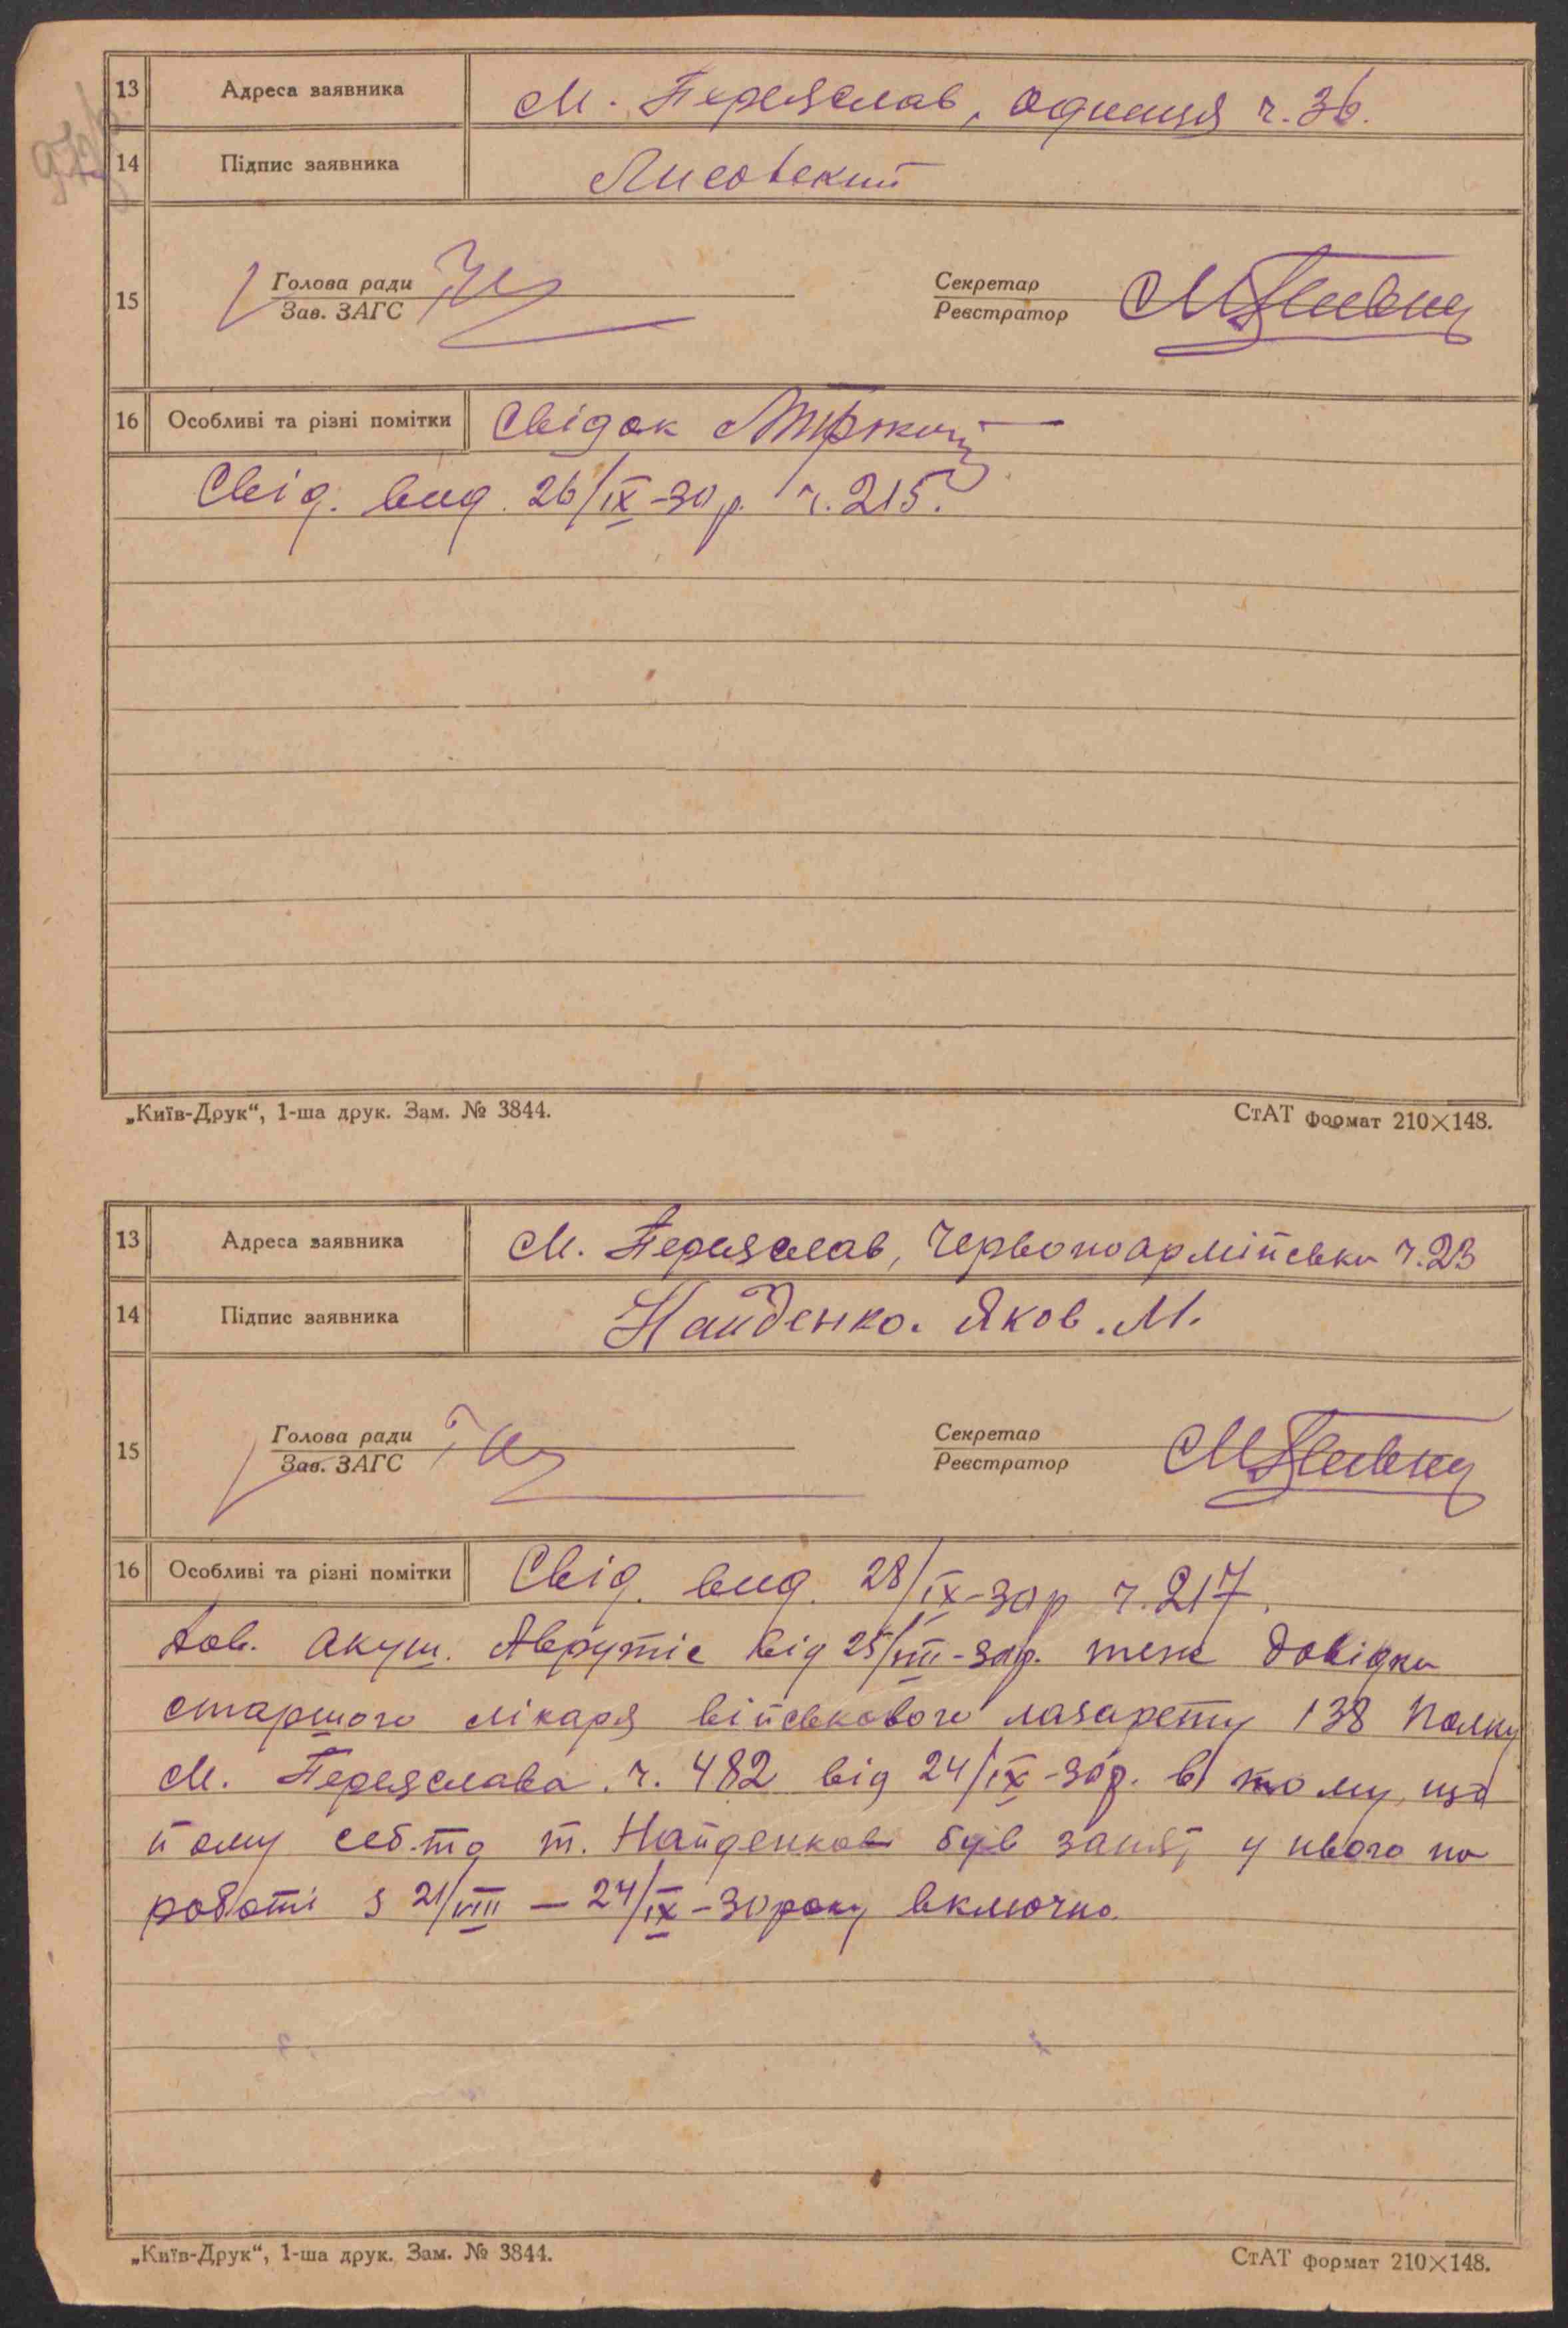 13 Адреса заявника М. Переяслав, Одинця ч. 36.
14 Підпис заявника Лисовский
15 Голова ради Секретар
Зав. ЗАГС Реєстратор
16 Особливі та різні помітки Свідок
Свід. вид. 26/IX-30 р. ч. 215.
„Київ-Друк“, 1-ша друк. Зам. № 3844. СтАТ формат 210×148.
13 Адреса заявника М. Переяслав, Червоноармійська ч. 23
14 Підпис заявника Найденко. Яков. М.
15 Голова ради Секретар
Зав. ЗАГС Реєстратор
16 Особливі та різні помітки Свід. вид. 28/IX-30 р ч. 217.
Дов. акуш. від 25/VIII-30 р. теж довідка
старшого лікаря військового лазарету 138 полку
М. Переяслава. ч. 482 від 24/IX-30 р. в тому, що
йому т. був у нього на
роботі з 21/VIII — 24/IX-30 року включно.
„Київ-Друк“, 1-ша друк. Зам. № 3844. СтАТ формат 210×148.